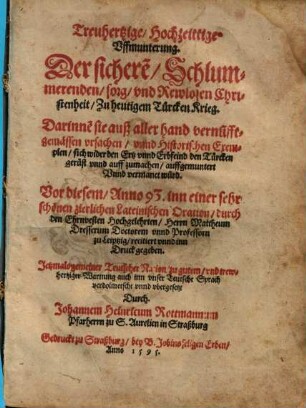 Treuhertzige / Hochzeittige
Vffmunterung.
Der sicherẽ / Schlum-
merenden / sorg / vnd Rewlosen Chri-
stenheit / Zu heutigem Türcken Krieg.
Darinnẽ sie auß aller hand vernüfft-
gemässen vrsachen / vnnd Historischen Exem-
plen / sich wider den Ertz vnnd Erbfeind den Türcken
gerüst vnnd auff zumachen / auffgemuntert
Vnnd vermanet würd.
Vor diesem / Anno 93. inn einer sehr
schönen zierlichen Lateinischen Oration / durch
den Ehrnvesten Hochgelehrten / Herrn Mattheum
Dresserum Doctorem vnnd Professorn
zu Leyptzig / recitiert vnnd inn
Druck gegeben.
Jetzmals gemeiner Teutscher Nation zu gutem / vnd trew-
hertziger Warnung auch inn vnser Deutsche Sprach
verdolmetscht vnnd vbergesetzt
Durch.
Johannem Heinricum Rottmannum
Pfarherrn zu S. Aurelien in Straßburg
Gedruckt zu Straßburg / bey B. Jobins seligen Erben /
Anno 1595.